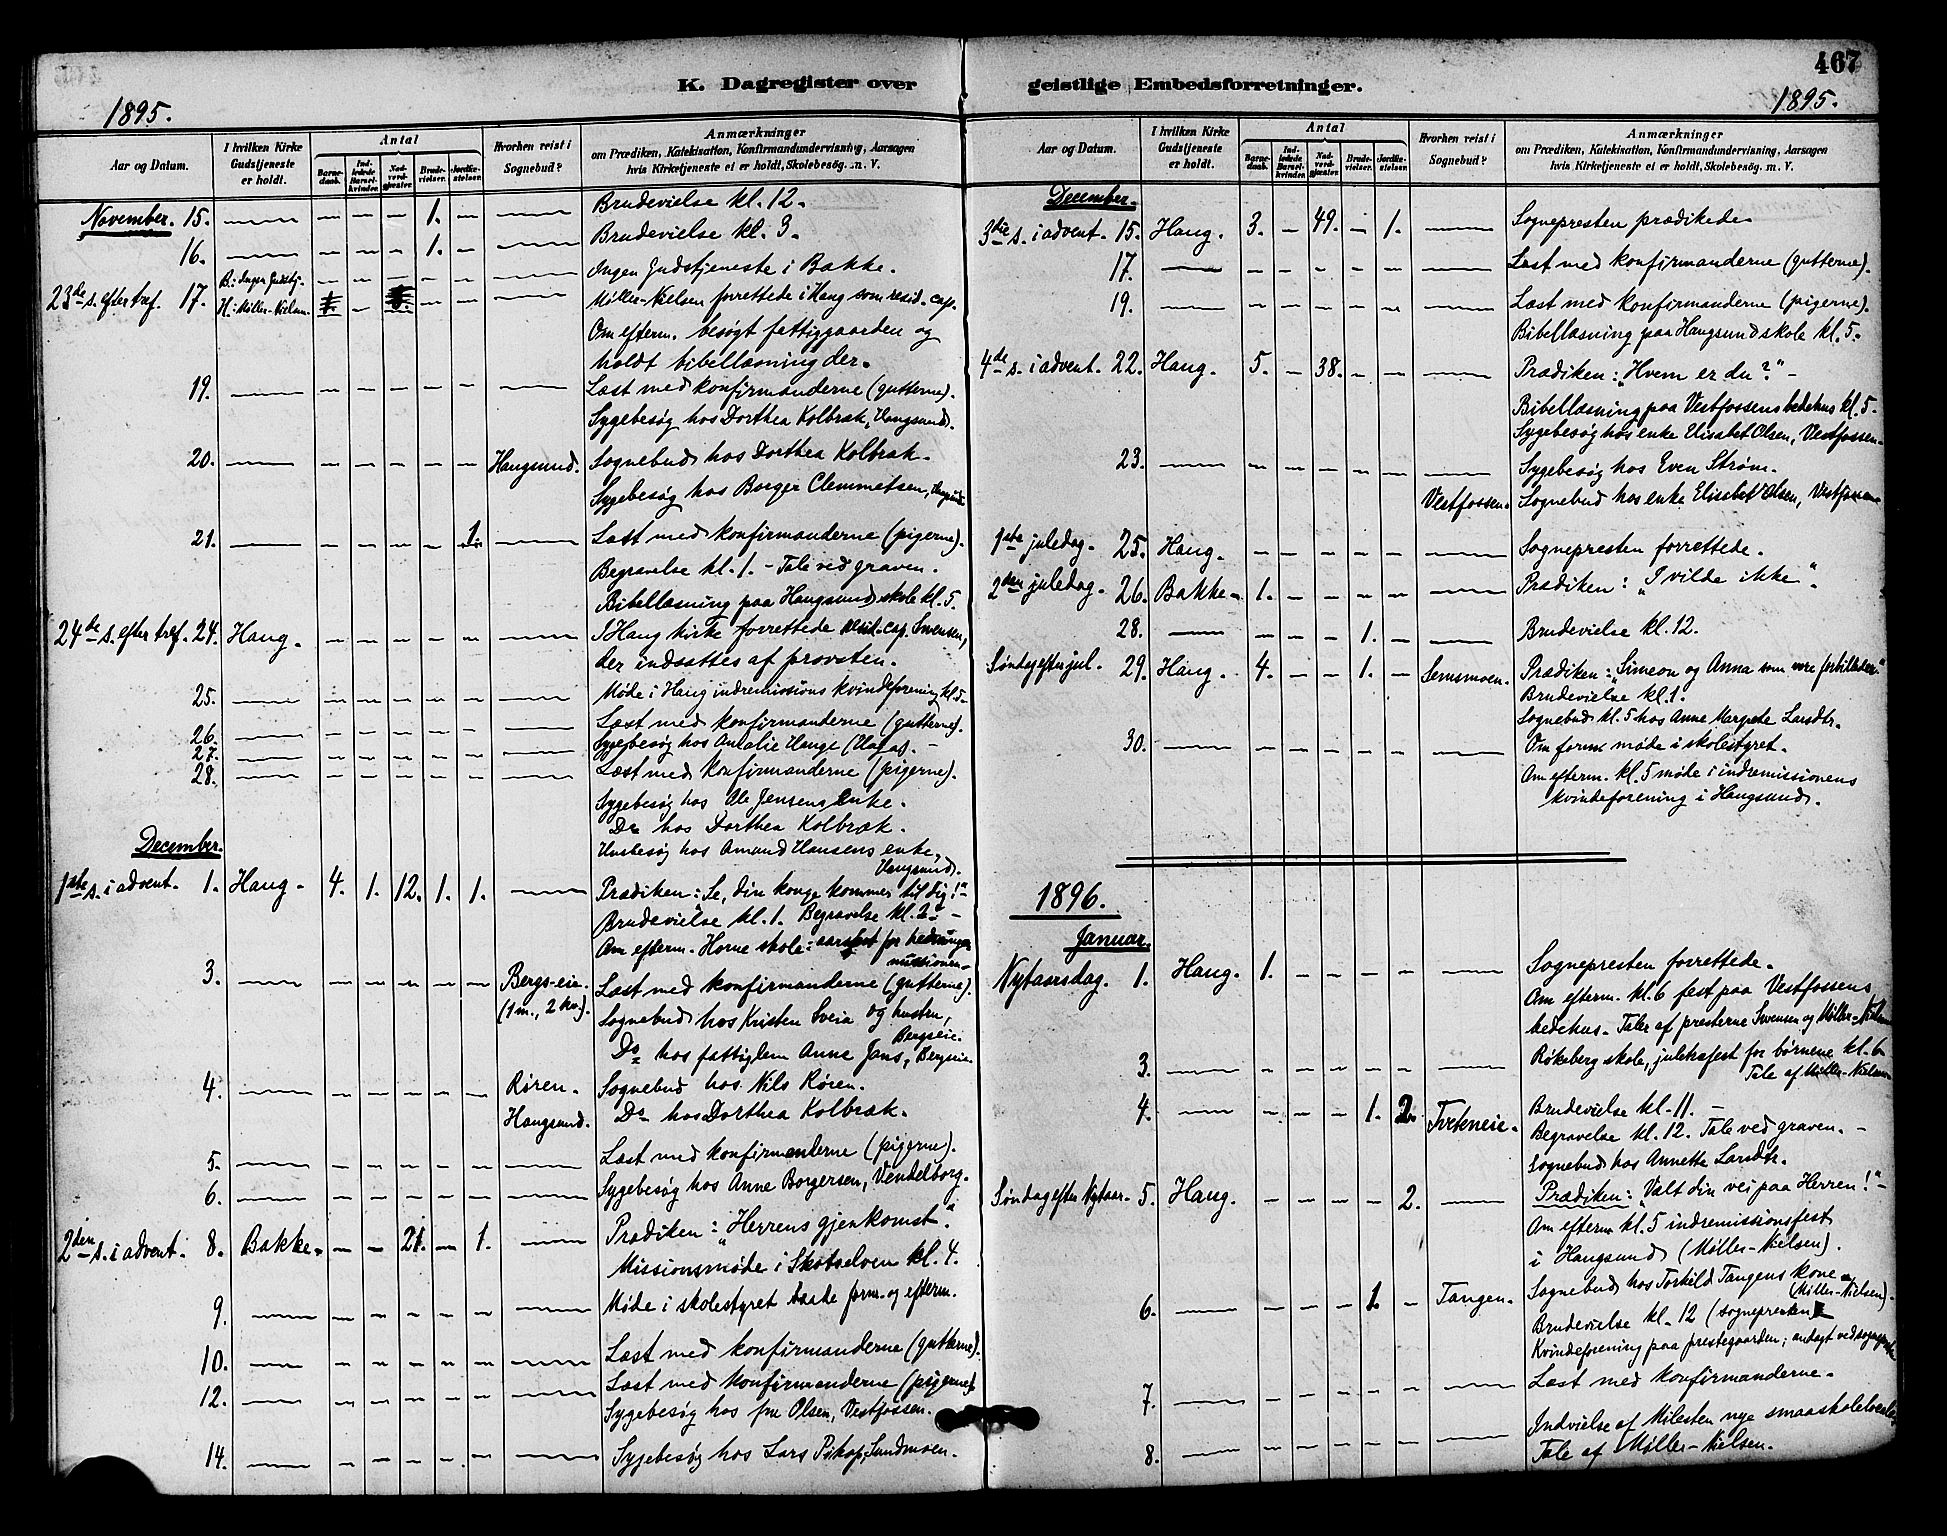 K. Dagregister over geistlige Embedsforretninger.
467
1895.
1895.
Aar og Datum.
I hvilken Kirke Gudstjeneste er holdt.
Antal
Barnedaab.
Indledede Barselkvinder.
Nadverdgjester.
Brudevielser.
Jordfæstelser.
Hvorhen reist i Sognebud?
Anmærkninger
om Prædiken, Katekisation, Konfirmandundervisning, Aarsagen
hvis Kirketjeneste ei er holdt, Skolebesøg. m. V.
November. 15. — — — — 1. — — Brudevielse kl. 12.
16. — — — — 1. — — Brudevielse kl. 3.
B.: Ingen Gudstj. — — — — — — Ingen Gudstjeneste i Bakke.
23de s. efter tref. 17. H.: Møller-Nielsen. — — — — Møller-Nielsen forrettede i Haug som resid. cap.
Om efterm. besøgt fattiggaarden og
holdt bibellæsning der.
19. — — — — — — — Læst med konfirmanderne (gutterne).
Sygebesøg hos Dorthea Kolbræk, Haugsund.
20. — — — — — — Haugsund. Sognebud hos Dorthea Kolbræk.
Sygebesøg hos Borger Clemmetsen, Haugsund.
21. — — — — — 1. — Læst med konfirmanderne (pigerne).
Begravelse kl. 1. – Tale ved graven.
Bibellæsning paa Haugsund skole kl. 5.
24de s. efter tref. 24. Haug. — — — — — — I Haug kirke forrettede resid. cap. Svensen,
der indsattes af provsten.
25. — — — — — — — Møde i Haug indremissions kvindeforening kl. 5.
26. — — — — — — — Læst med konfirmanderne (gutterne).
27. — — — — — — — Sygebesøg hos Amalie Hauge. –
28. — — — — — — — Læst med konfirmanderne (pigerne).
Sygebesøg hos Ole Jensens Enke.
Do hos Dorthea Kolbræk.
Husbesøg hos Amund Hansens enke,
Haugsund.
December.
1ste s. i advent. 1. Haug. 4. 1. 12. 1. 1. — Prædiken: „Se, din konge kommer til dig!“
Brudevielse kl. 1. Begravelse kl. 2. –
Om efterm. Horne skole: aarsfest for hedningemissionen.
3. — — — — — — Bergs-eie. Læst med konfirmanderne (gutterne).
(1 m., 2 kv.). Sognebud hos Kristen Sveia og hustru,
Bergseie.
Do hos fattiglem Anne Jans, Bergseie.
4. — — — — — — Røren. Sognebud hos Nils Røren.
Haugsund. Do hos Dorthea Kolbræk.
5. — — — — — — — Læst med konfirmanderne (pigerne).
6. — — — — — — — Sygebesøg hos Anne Borgersen, Vendelborg.
2den s. i advent. 8. Bakke. — — 21. — 1. — Prædiken: „Herrens gjenkomst“.
Missionsmøde i Skotselven kl. 4.
9. — — — — — — — Møde i skolestyret baade form. og efterm.
10. — — — — — — — Læst med konfirmanderne (gutterne).
12. — — — — — — — Læst med konfirmanderne (pigerne).
Sygebesøg hos fru Olsen, Vestfossen.
14. — — — — — — — Sygebesøg hos Lars Piskop, Sundmoen.
Aar og Datum.
I hvilken Kirke Gudstjeneste er holdt.
Antal
Barnedaab.
Indledede Barselkvinder.
Nadverdgjester.
Brudevielser.
Jordfæstelser.
Hvorhen reist i Sognebud?
Anmærkninger
om Prædiken, Katekisation, Konfirmandundervisning, Aarsagen
hvis Kirketjeneste ei er holdt, Skolebesøg. m. V.
December.
3die s. i advent. 15. Haug. 3. — 49. — 1. — Sognepresten prædikede.
17. — — — — — — — Læst med konfirmanderne (gutterne).
19. — — — — — — — Læst med konfirmanderne (pigerne).
Bibellæsning paa Haugsund skole kl. 5.
4de s. i advent. 22. Haug. 5. — 38. — — — Prædiken: „Hvem er du?“ –
Bibellæsning paa Vestfossens bedehus kl. 5.
Sygebesøg hos enke Elisabet Olsen, Vestfossen.
23. — — — — — — — Sygebesøg hos Even Strøm.
Vestfossen. Sognebud hos enke Elisabet Olsen, Vestfossen
1ste juledag. 25. Haug. — — — — — — Sognepresten forrettede.
2den juledag. 26. Bakke. 1. — — — — — Prædiken: „I vilde ikke“.
28. — — — — 1. — — Brudevielse kl. 12.
Søndag efter jul. 29. Haug. 4. — — 1. — Semsmoen. Prædiken: „Simeon og Anna som vore forbilleder“
Brudevielse kl. 1.
Sognebud kl. 5 hos Anne Margrete Larsdtr.
30. — — — — — — — Om form. møde i skolestyret.
Om efterm. kl. 5 møde i indremissionens
kvindeforening i Haugsund.
1896.
Januar.
Nytaarsdag. 1. Haug. 1. — — — — — Sognepresten forrettede.
Om efterm. kl. 6 fest paa Vestfossens
bedehus. Taler af presterne Svensen og Møller-Nielsen
3. — — — — — — — Røkeberg skole, juletræfest for børnene kl. 6
Tale af Møller-Nielsen
4. — — — — 1. 2. Brudevielse kl. 11. –
Begravelse kl. 12. Tale ved graven. –
Sognebud hos Annette Larsdtr.
Søndag efter Nytaar. 5. Haug. — — — — 2. — Prædiken: „Vælt din vei paa Herren!“ –
Om efterm kl. 5 indremissionsfest
i Haugsund (Møller-Nielsen).
6. — — — — 1. — Tangen. Sognebud hos Torkild Tangens kone.
(Møller-Nielsen).
Brudevielse kl. 12 (sognepresten)
Kvindeforening paa prestegaarden; andagt ved
7. — — — — — — — Læst med konfirmanderne.
8. — — — — — — — Indvielse af Milesten nye smaaskolelokale
Tale af Møller-Nielsen.